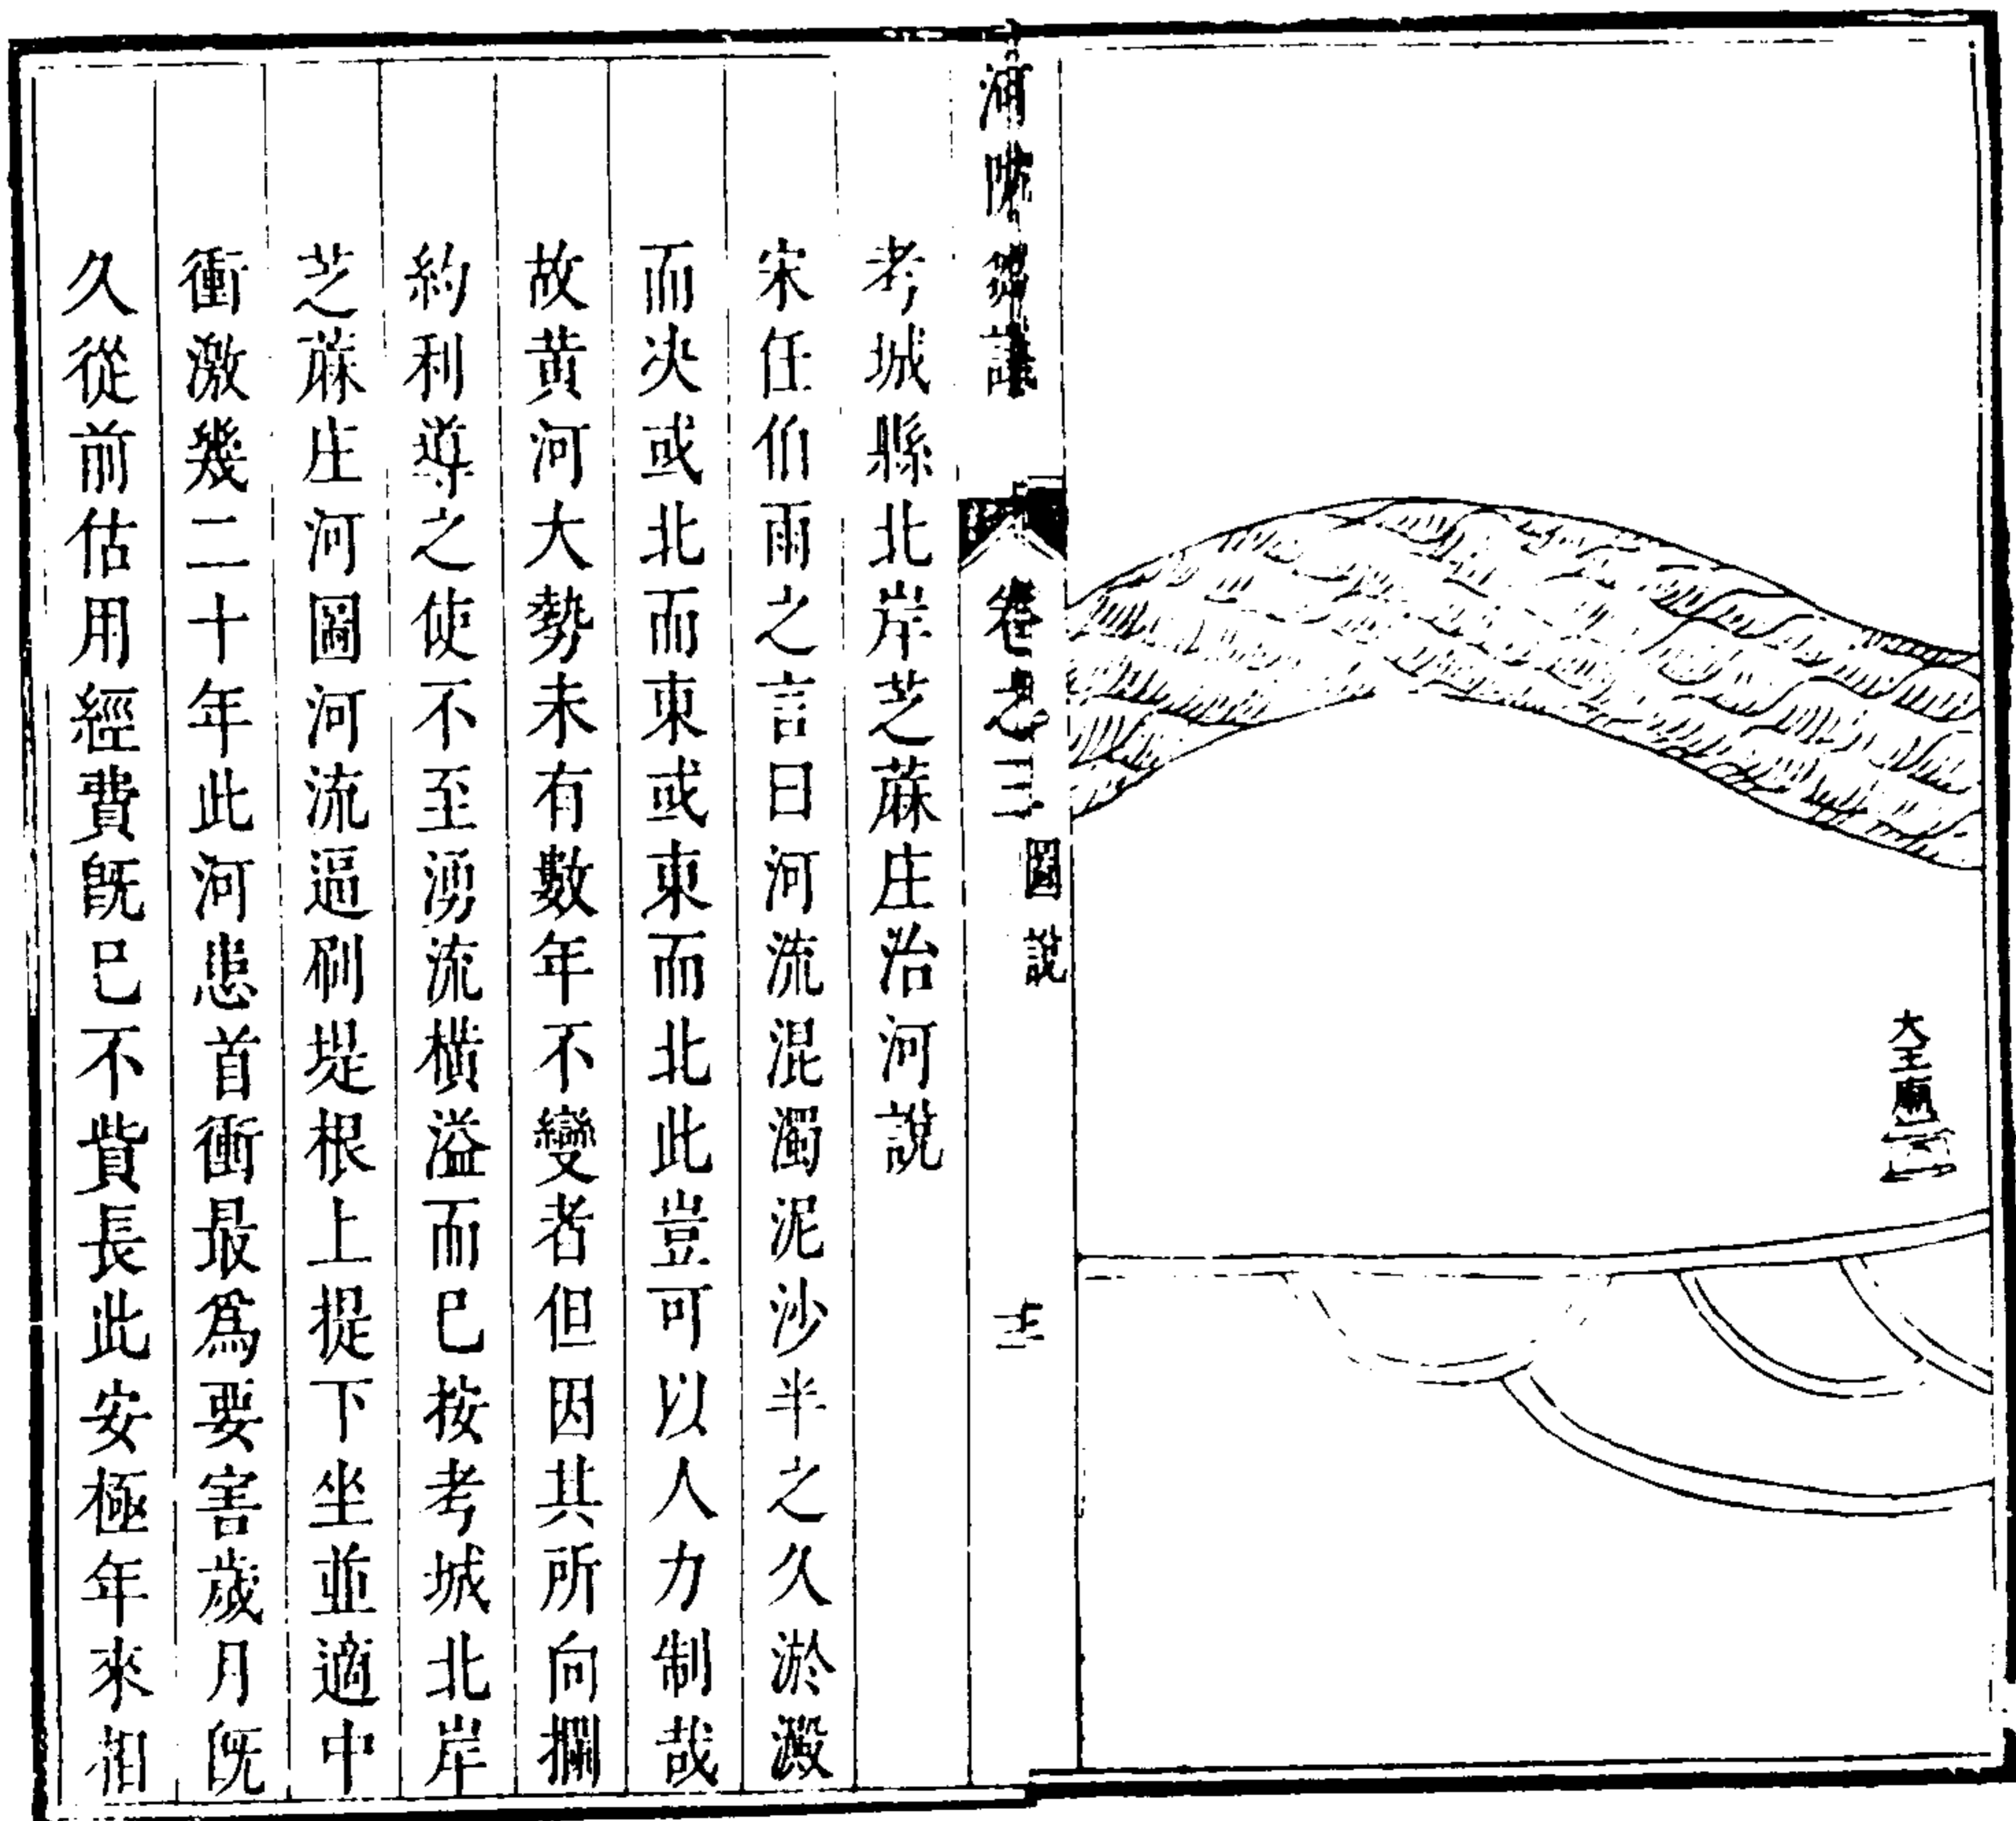 大王廟
河防芻議
卷之三
圖說
考城縣北岸芝蔴庄治河說
宋任伯雨之言曰河流混濁泥沙半之久淤澱
而决或北而東或東而北此豈可以人力制哉
故黃河大勢未有數年不變者但因其所向攔
約利導之使不至湧流橫溢而巳按考城北岸
芝蔴庄河圖河流逼刷堤根上提下坐並適中
衝激幾二十年此河患首衝最爲要害歲月旣
久從前估用經費旣巳不貲長此安極年來相